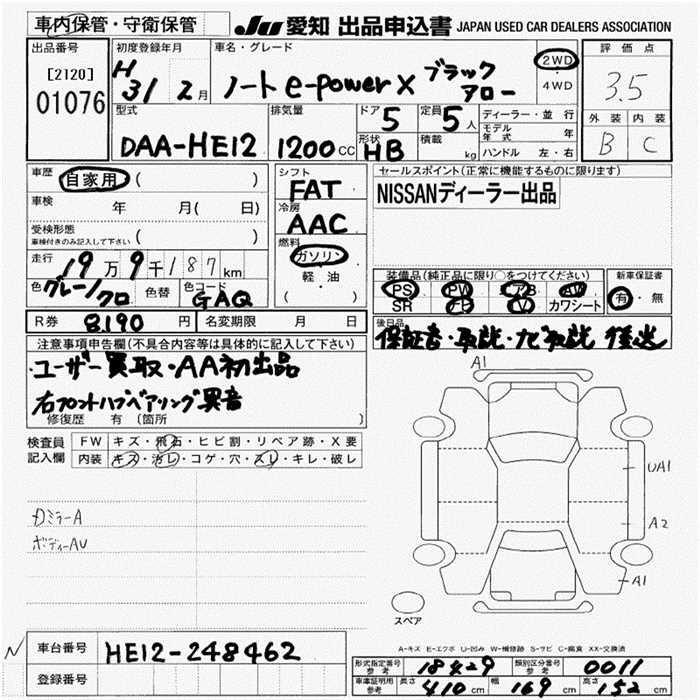 車内保管・守衛保管
JU 愛知 出品申込書 JAPAN USED CAR DEALERS ASSOCIATION
出品番号
[2120]
01076
初度登録年月
H 31 2月
車名・グレード
ノート e-power X ブラックアロー
2WD
・4WD
評価点
3.5
外装 内装
B C
型式
DAA-HE12
排気量
1200 cc
ドア 5
形状 HB
定員 5 人
積載 kg
ディーラー・並行
モデル年式 年
ハンドル 左・右
車歴 自家用 ( )
車検 年 月( 日)
受検形態
車検付きのみ記入して下さい ( )
走行 19万9千187km
色 グレー/クロ 色替 色コード GAQ
R券 8190 円 名変期限 月 日
シフト
FAT
冷房
AAC
燃料
ガソリン
・軽・油
( )
セールスポイント(正常に機能するものに限ります)
NISSANディーラー出品
装備品(純正品に限り○をつけてください)
PS PW AB AW
SR TV カワシート
新車保証書
有・無
後日品
保証書・取説・ナビ取説 後送
注意事項申告欄(不具合内容等は具体的に記入して下さい)
・ユーザー買取・AA初出品
右フロントハブベアリング異音
修復歴 有 〔箇所 〕
検査員記入欄
FW キズ・飛石・ヒビ割・リペア跡・X要
内装 キズ・汚レ・コゲ・穴・スレ・キレ・破レ
カミラーA
ボディーAU
A1
UA1
A2
A1
スペア
A-キズ E-エクボ U-凹み W-補修跡 S-サビ C-腐食 XX-交換済
N
車台番号 HE12-248462
登録番号
形式指定番号参考 18429 類別区分番号参考 0011
車庫証明用参考 長さ 410 cm 幅 169 cm 高さ 152 cm